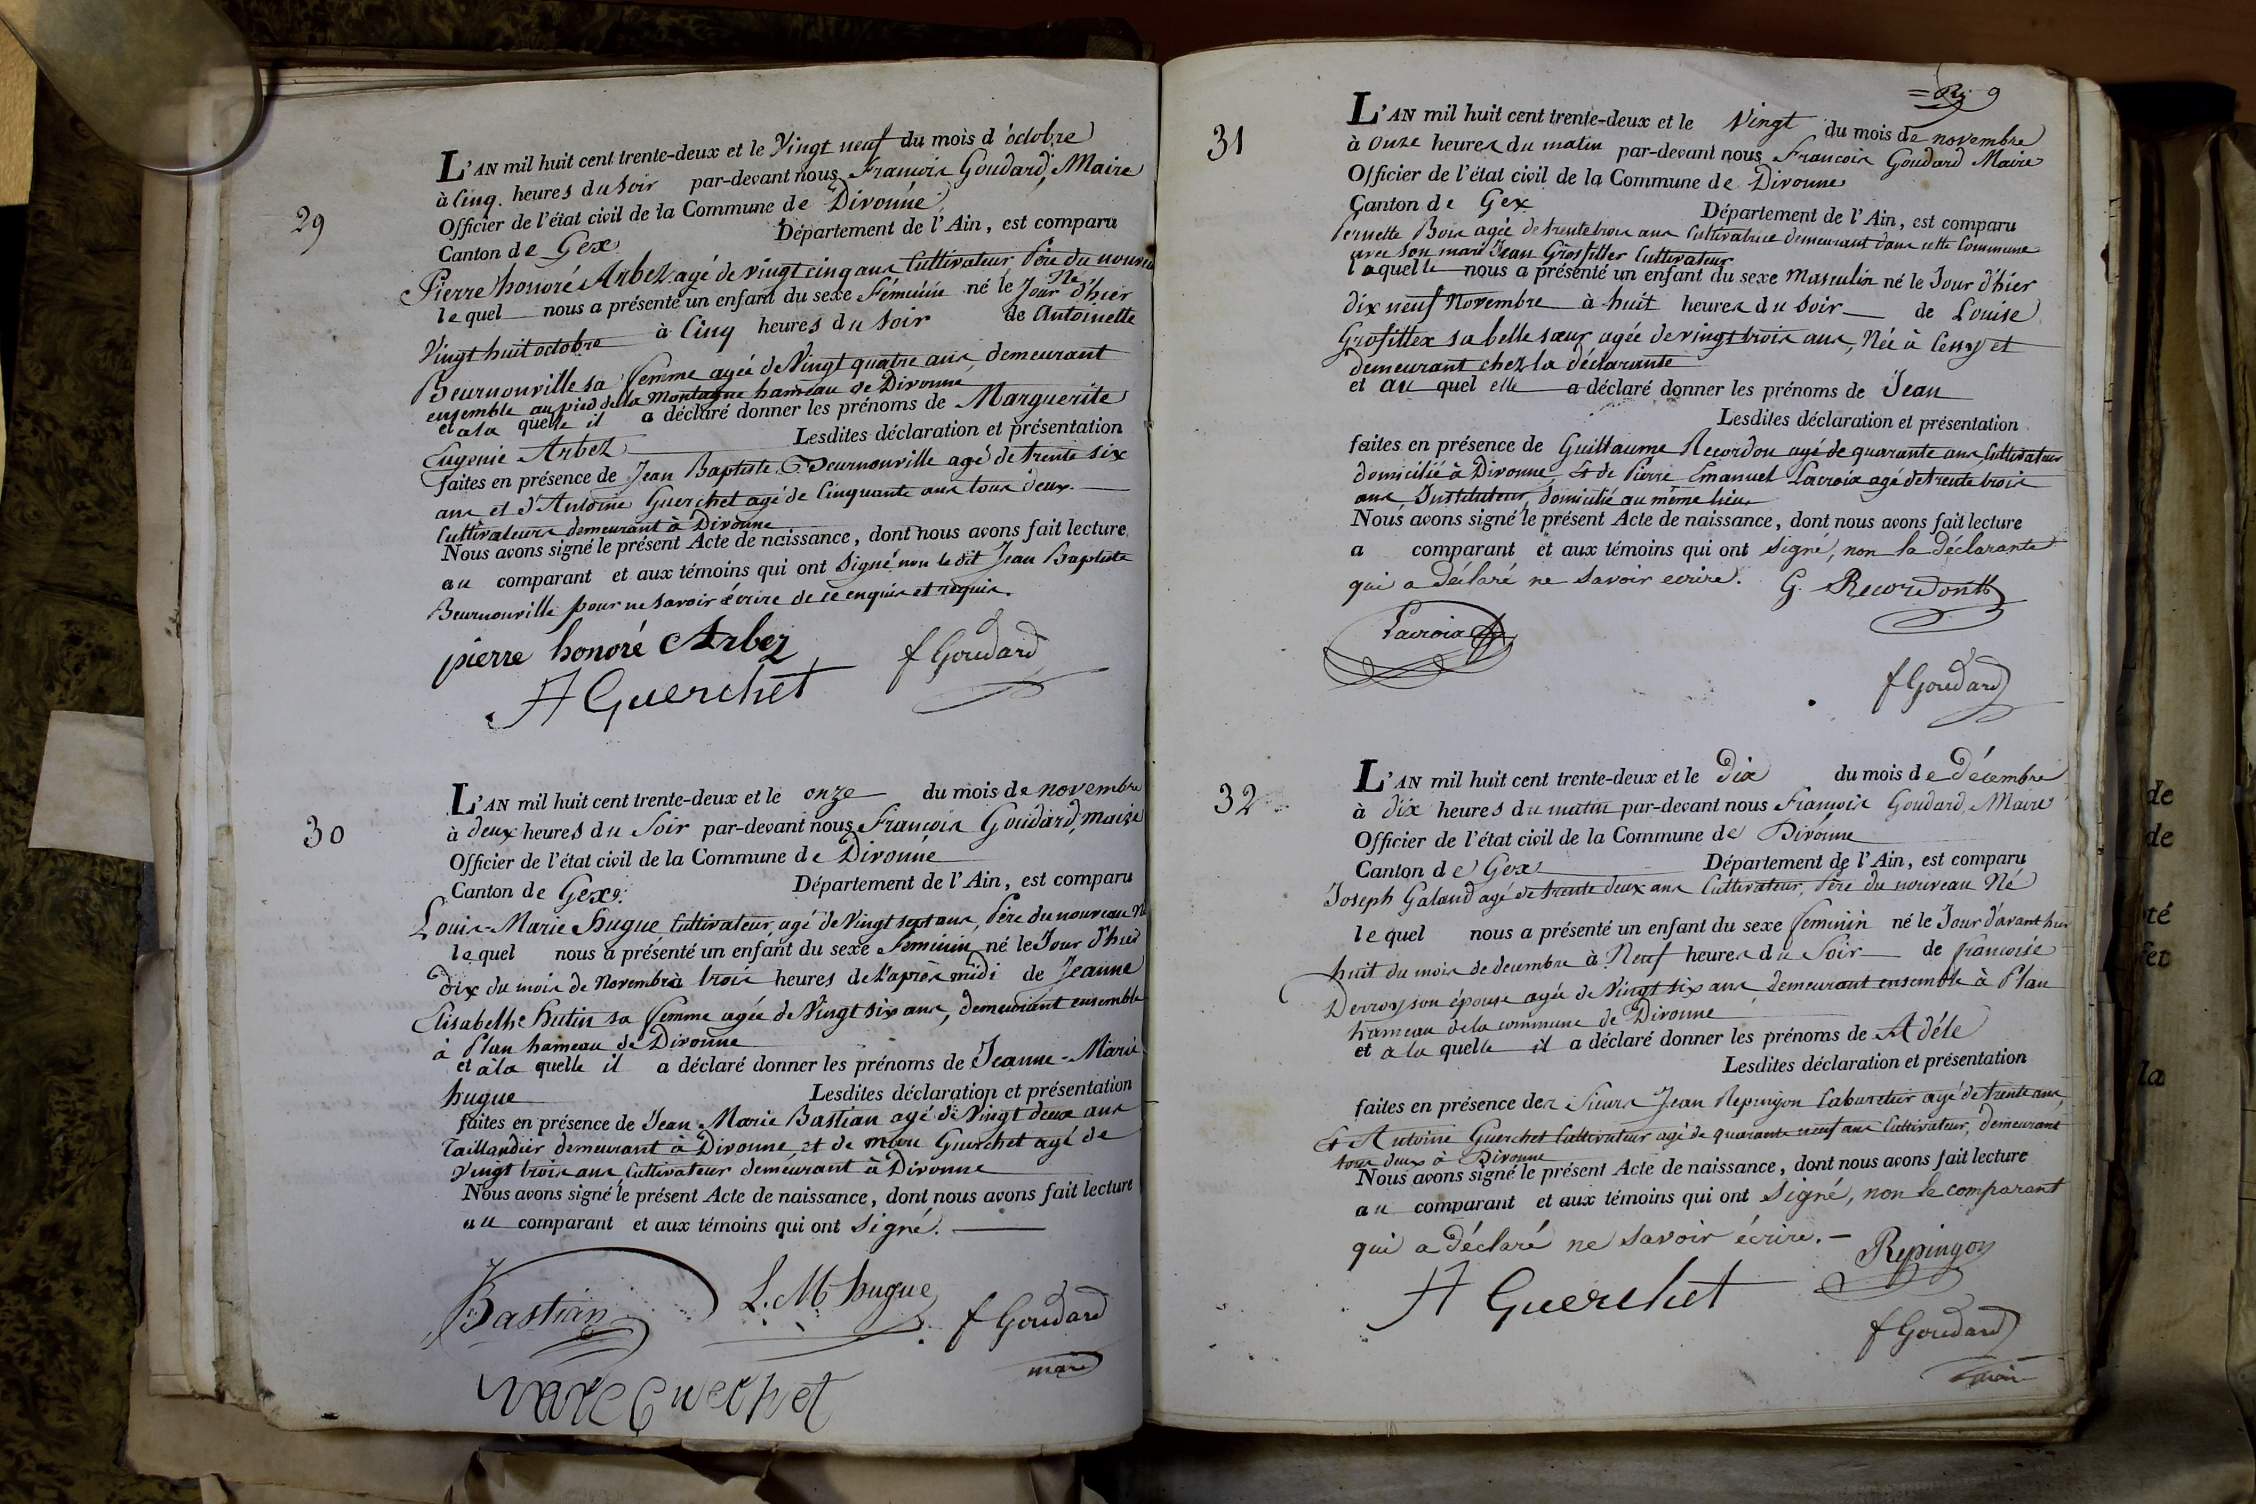 29
L'AN mil huit cent trente-deux et le Vingt neuf du mois d'octobre
à Cinq heures du soir par-devant nous François Goudard, Maire
Officier de l'état civil de la Commune de Divonne
Canton de Gex Département de l'Ain, est comparu
Pierre honoré Arbez agé de vingt cinq ans Cultivateur Père du nouveau
Né
le quel nous a présenté un enfant du sexe Féminin né le Jour d'hier
Vingt huit octobre à Cinq heures du soir de Antoinette
Beurnonville sa femme agée de Vingt quatre ans, demeurant
ensemble au pied de la Montagne hameau de Divonne
et a la quelle il a déclaré donner les prénoms de Marguerite
Eugenie Arbez Lesdites déclaration et présentation
faites en présence de Jean Baptiste Beurnonville agé de trente six
ans et d'Antoine Guerchet agé de Cinquante ans tous deux
Cultivateurs demeurant à Divonne
Nous avons signé le présent Acte de naissance, dont nous avons fait lecture
au comparant et aux témoins qui ont Signé non le dit Jean Baptiste
Beurnonville pour ne savoir écrire de ce enquis et requis.
pierre honoré Arbez f Goudard
A Guerchet
30
L'AN mil huit cent trente-deux et le onze du mois de novembre
à deux heures du Soir par-devant nous François Goudard, maire
Officier de l'état civil de la Commune de Divonne
Canton de Gex Département de l'Ain, est comparu
Louis-Marie Hugue Cultivateur, agé de Vingt sept ans, Père du nouveau Né
le quel nous a présenté un enfant du sexe Féminin né le Jour d'hier
dix du mois de Novembre à trois heures de l'après midi de Jeanne
Elisabethe Hutin sa femme agée de Vingt six ans, demeurant ensemble
à Plan hameau de Divonne
et à la quelle il a déclaré donner les prénoms de Jeanne-Marie
hugue Lesdites déclaration et présentation
faites en présence de Jean Marie Bastian agé de Vingt deux ans
Taillandier demeurant à Divonne, et de marc Guerchet agé de
Vingt trois ans, Cultivateur demeurant à Divonne
Nous avons signé le présent Acte de naissance, dont nous avons fait lecture
au comparant et aux témoins qui ont signé.
Bastian L. M hugue f Goudard
maire
marc Guerchet
9
31
L'AN mil huit cent trente-deux et le Vingt du mois de novembre
à onze heures du matin par-devant nous François Goudard Maire
Officier de l'état civil de la Commune de Divonne
Canton de Gex Département de l'Ain, est comparu
Pernette Bois agée de trente trois ans Cultivatrice demeurant dans cette Commune
avec son mari Jean Grosfillex Cultivateur
laquelle nous a présenté un enfant du sexe Masculin né le Jour d'hier
dix neuf Novembre à huit heures du Soir de Louise
Grosfillex sa belle sœur agée de vingt trois ans, Née à Cessy et
demeurant chez la déclarante
et au quel elle a déclaré donner les prénoms de Jean
Lesdites déclaration et présentation
faites en présence de Guillaume Recordon agé de quarante ans, Cultivateur
domicilié à Divonne, Et de Pierre Emanuel Lacroix agé de trente trois
ans Instituteur, domicilié au même lieu
Nous avons signé le présent Acte de naissance, dont nous avons fait lecture
a comparant et aux témoins qui ont signé, non la déclarante
qui a déclaré ne savoir ecrire. G. Recordon
Lacroix
f Goudard
32
L'AN mil huit cent trente-deux et le Dix du mois de Décembre
à dix heures du matin par-devant nous François Goudard, Maire
Officier de l'état civil de la Commune de Divonne
Canton de Gex Département de l'Ain, est comparu
Joseph Galand agé de trente deux ans Cultivateur, Père du nouveau Né
le quel nous a présenté un enfant du sexe féminin né le Jour d'avant hier
huit du mois de decembre à Neuf heures du Soir de françoise
Derroy son épouse agée de Vingt six ans demeurant ensemble à Plan
hameau de la commune de Divonne
et a la quelle il a déclaré donner les prénoms de Adéle
Lesdites déclaration et présentation
faites en présence des Sieurs Jean Repingon Laboureur agé de trente ans,
Et Antoine Guerchet Cultivateur agé de quarante neuf ans Cultivateur, demeurant
tous deux à Divonne
Nous avons signé le présent Acte de naissance, dont nous avons fait lecture
au comparant et aux témoins qui ont Signé, non le comparant
qui a déclaré ne savoir écrire. Repingon
A Guerchet
f Goudard
maire
de
de
té
et
la